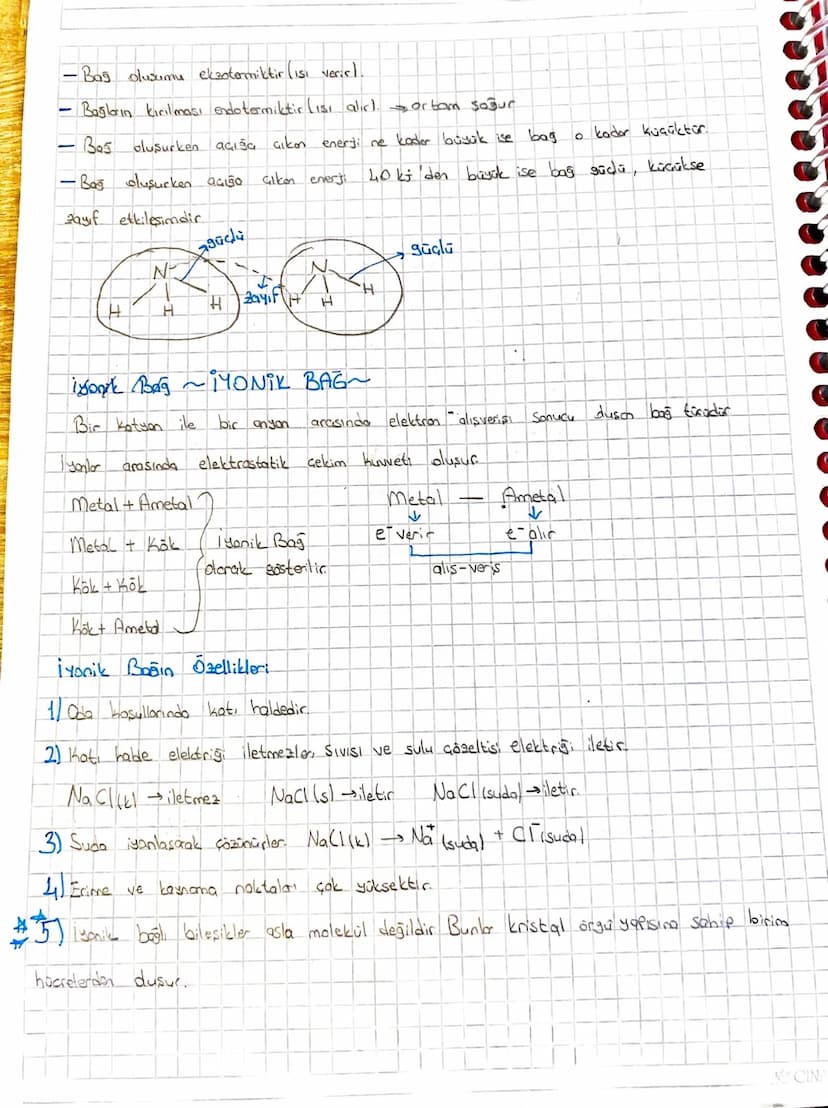 - Bağ oluşumu ekzotermiktir (ısı verir).
- Bağların kırılması endotermiktir (ısı alır). → ortam soğur
- Bağ oluşurken açığa çıkan enerji ne kadar büyük ise bağ o kadar küçüktür.
- Bağ oluşurken açığa çıkan enerji 40 kj'den büyük ise bağ güçlü, küçükse
zayıf etkileşimdir
güçlü
güçlü
N
N
H H H
zayıf
H H H
İyonik Bağ ~ İYONİK BAĞ ~
Bir katyon ile bir anyon arasında elektron alışverişi sonucu oluşan bağ türüdür
İyonlar arasında elektrostatik çekim kuvveti oluşur.
Metal + Ametal
Metal + Kök
Kök + Kök
Kök + Ametal
İyonik Bağ
olarak gösterilir.
Metal — Ametal
↓ ↓
e⁻ verir e⁻ alır
alış-veriş
İyonik Bağın Özellikleri
1) Oda koşullarında katı haldedir.
2) Katı halde elektriği iletmezler, sıvısı ve sulu çözeltisi elektriği iletir.
NaCl(k) → iletmez NaCl(s) → iletir NaCl(suda) → iletir.
3) Suda iyonlaşarak çözünürler. NaCl(k) → Na⁺(suda) + Cl⁻(suda)
4) Erime ve kaynama noktaları çok yüksektir.
5) İyonik bağlı bileşikler asla molekül değildir Bunlar kristal örgü yapısına sahip birim
hücrelerden oluşur.